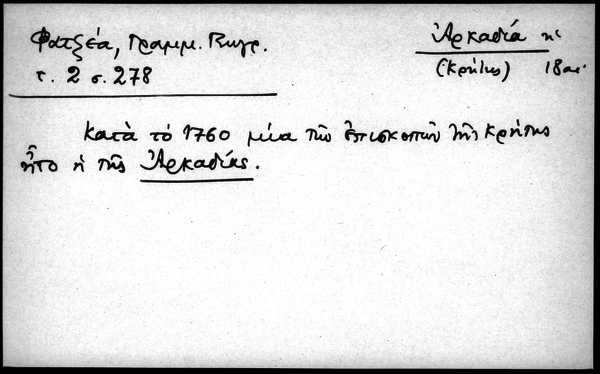 Φατζέα, Γραμμ. Γεωγρ.
τ. 2 σ. 278
Ἀρκαδία ἡ
(Κρήτης) 18 αι.
Κατὰ τὸ 1760 μία τῶν ἐπισκοπῶν τῆς Κρήτης
ἦτο ἡ τῆς Ἀρκαδίας.